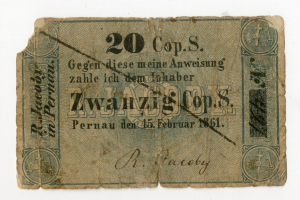 20 Cop.S.
Gegen diese meine Anweisung
zahle ich dem Inhaber
Zwanzig Cop.S.
Pernau den 15. Februar 1861.
R. Jacoby
R. Jacoby
in Pernau.